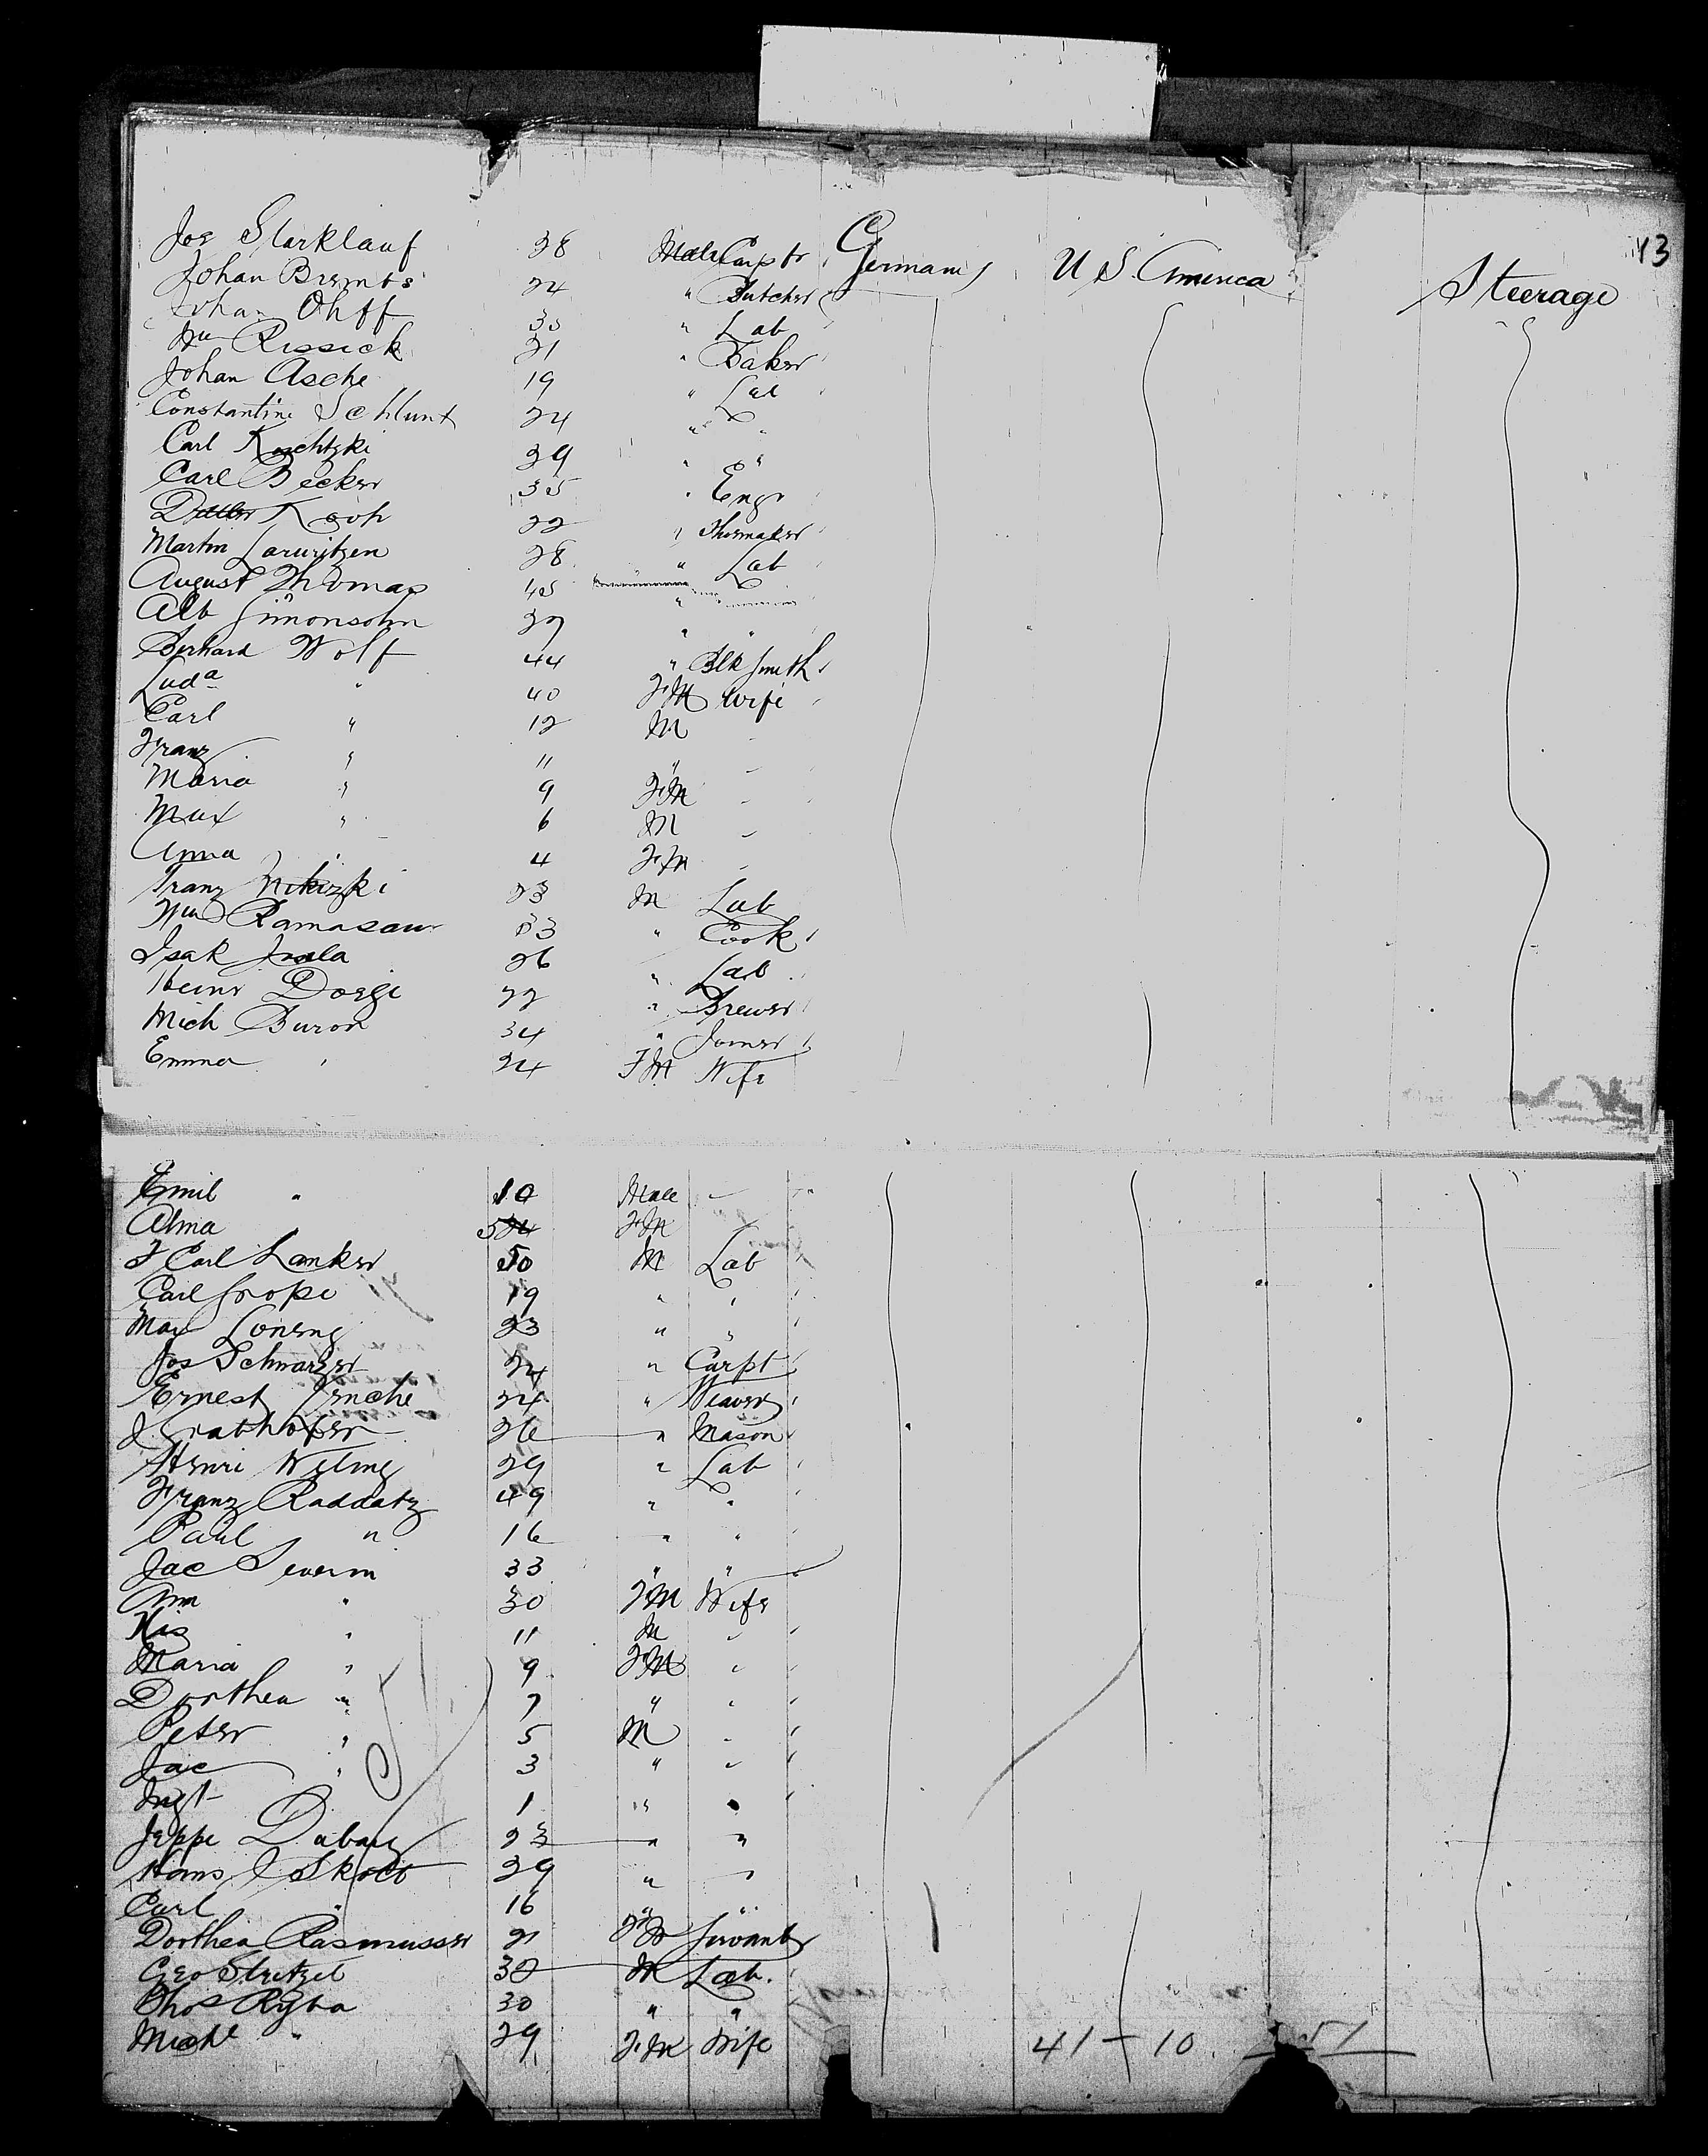 13
Jos Starklauf 28 Male Carptr Germany U S. America Steerage
Johan Brembs 24 " Butcher
Johan Ohff 35 " Lab
Wm Rissick 21 " Baker
Johan Asche 19 " Lab
Constantine Schlunt 24 " "
Carl 29 " "
Carl Becker 35 " Engr
Koop 22 " Shoemaker
Martin Lauritzen 28 " Lab
August Thomas 45 "
Alb Simonsohn 27 " "
Berhard Wolf 44 " Blk Smith
Luda " 40 FM Wife
Carl " 12 M
Franz " 11 "
Maria " 9 FM
Max " 6 M
Anna " 4 FM
Franz 23 M Lab
Wm Ramasaur 33 " Cook
Isak 26 " Lab
Heinr Doege 22 " Brewer
Mich Buron 34 " Joiner
Emma " 24 FM Wife
Emil " 10 Male
Alma FM
F Carl Lanker 50 M Lab
Carl Grope 19 " "
Max 23 " "
Jos Schwarzer 24 " Carpt
Ernest 24 " Weaver
J 26 " Mason
Henri 29 " Lab
Franz Raddatz 49 " "
Paul " 16 " "
Jac Severin 33 " "
Ann " 30 FM Wife
Nis " 11 M
Maria " 9 FM
Dorthea " 7 "
Peter " 5 M
Jac " 3 "
1 "
Jeppe 23 " "
Hans J Skott 29 " "
Carl " 16 " "
Dorthea Rasmussen 21 FM Servant
Geo Stretzel 30 M Lab.
Thos Ryba 30 " "
Michl " 29 FM Wife
41 - 10 51